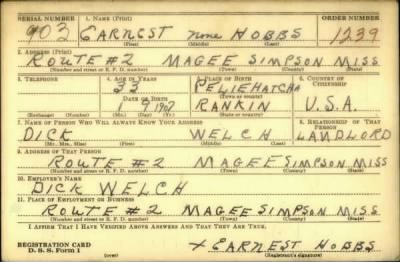 SERIAL NUMBER 1. NAME (Print) ORDER NUMBER
903 EARNEST none HOBBS 1239
(First) (Middle) (Last)
2. ADDRESS (Print)
ROUTE #2 MAGEE SIMPSON MISS
(Number and street or R. F. D. number) (Town) (County) (State)
3. TELEPHONE 4. AGE IN YEARS 5. PLACE OF BIRTH 6. COUNTRY OF CITIZENSHIP
33 PELIEHATCHA
DATE OF BIRTH (Town or county)
1 9 1907 RANKIN U.S.A.
(Exchange) (Number) (Mo.) (Day) (Yr.) (State or country)
7. NAME OF PERSON WHO WILL ALWAYS KNOW YOUR ADDRESS 8. RELATIONSHIP OF THAT PERSON
DICK WELCH LANDLORD
(Mr., Mrs., Miss) (First) (Middle) (Last)
9. ADDRESS OF THAT PERSON
ROUTE #2 MAGEE SIMPSON MISS
(Number and street or R. F. D. number) (Town) (County) (State)
10. EMPLOYER'S NAME
DICK WELCH
11. PLACE OF EMPLOYMENT OR BUSINESS
ROUTE #2 MAGEE SIMPSON MISS
(Number and street or R. F. D. number) (Town) (County) (State)
I AFFIRM THAT I HAVE VERIFIED ABOVE ANSWERS AND THAT THEY ARE TRUE.
REGISTRATION CARD X EARNEST HOBBS
D. S. S. Form 1 (over) (Registrant's signature)